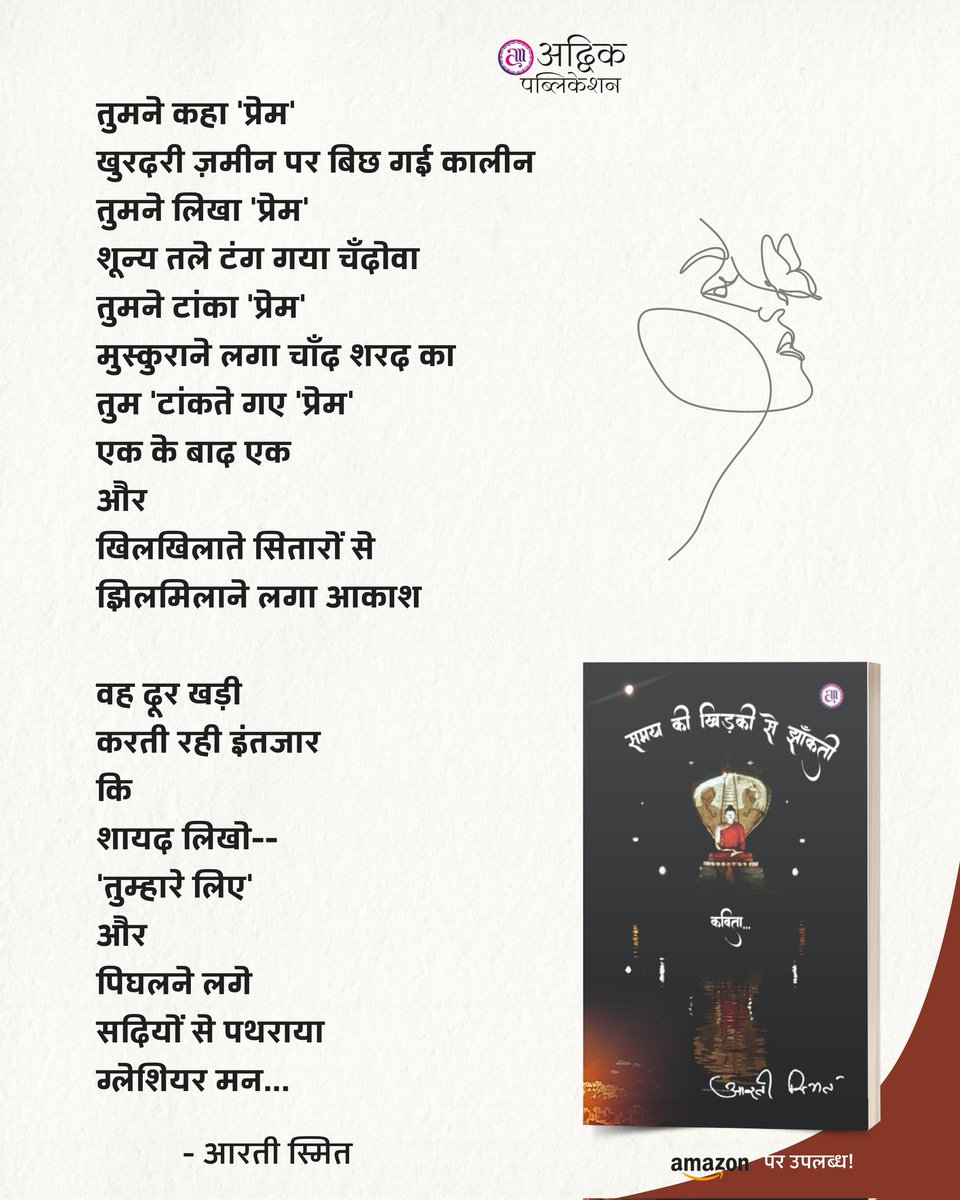 अद्विक
पब्लिकेशन
तुमने कहा 'प्रेम'
खुरदरी ज़मीन पर बिछ गई कालीन
तुमने लिखा 'प्रेम'
शून्य तले टंग गया चँदोवा
तुमने टांका 'प्रेम'
मुस्कुराने लगा चाँद शरद का
तुम 'टांकते गए 'प्रेम'
एक के बाद एक
और
खिलखिलाते सितारों से
झिलमिलाने लगा आकाश
वह दूर खड़ी
करती रही इंतजार
कि
शायद लिखो--
'तुम्हारे लिए'
और
पिघलने लगे
सदियों से पथराया
ग्लेशियर मन...
- आरती स्मित
समय की खिड़की से झाँकती
कविता...
आरती स्मित
amazon पर उपलब्ध!